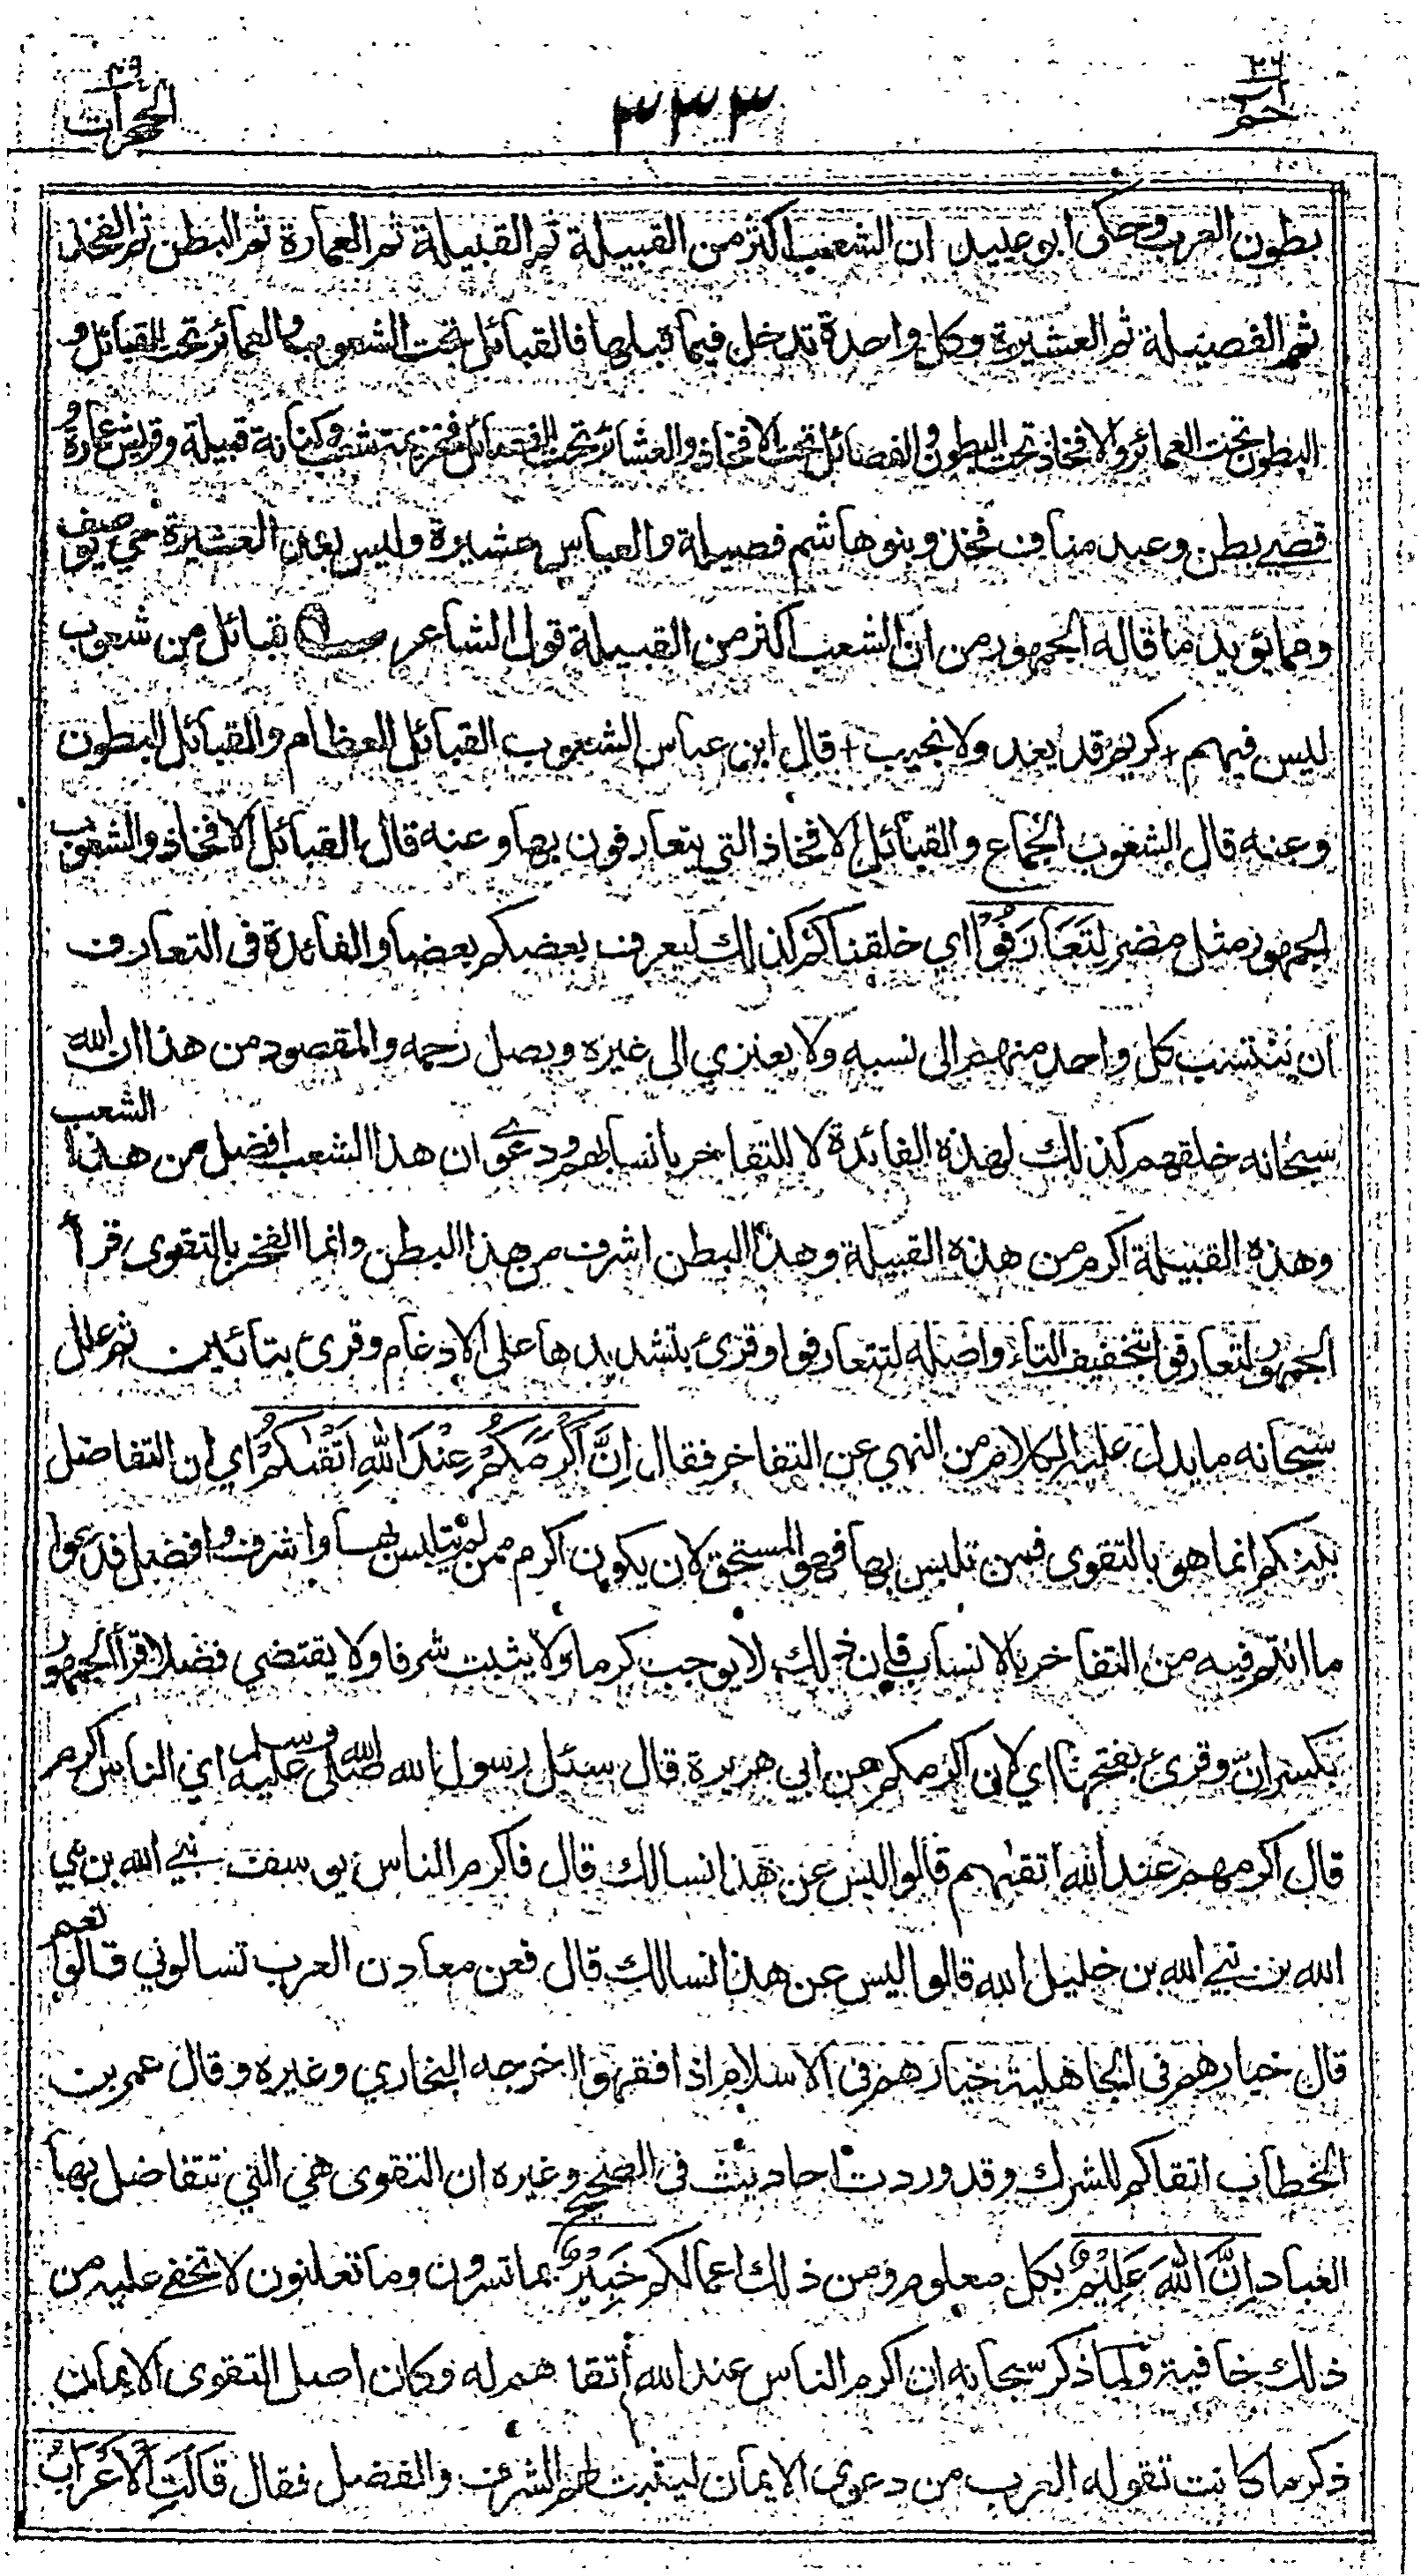 الحجرات ٤٩
٣٣٣
حم ٢٦
بطون العرب وحكى ابو عبيد ان الشعب اكثر من القبيلة ثم القبيلة ثم العمارة ثم البطن ثم الفخذ
ثم الفصيلة ثم العشيرة وكل واحدة تدخل فيما قبلها فالقبائل تحت الشعوب والعمائر تحت القبائل و
البطون تحت العمائر والافخاذ تحت البطون والفصائل تحت الافخاذ والعشائر تحت الفصائل فخزيمة شعب وكنانة قبيلة وقريش عمارة و
قصي بطن وعبد مناف فخذ وبنو هاشم فصيلة والعباس عشيرة وليس بعد العشيرة حي يوصف
ومما يؤيد ما قاله الجمهور من ان الشعب اكثر من القبيلة قول الشاعر قبائل من شعوب
ليس فيهم + كريم قد يعد ولا نجيب + قال ابن عباس الشعوب القبائل العظام والقبائل البطون
وعنه قال الشعوب الجماع والقبائل الافخاذ التي يتعارفون بها وعنه قال القبائل الافخاذ والشعوب
الجمهور مثل مضر لِتَعَارَفُوْا اي خلقناكم كذلك ليعرف بعضكم بعضا والفائدة فى التعارف
ان ينتسب كل واحد منهم الى نسبه ولا يعتزي الى غيره ويصل رحمه والمقصود من هذا ان الله
سبحانه خلقهم كذلك لهذه الفائدة لا للتفاخر بانسابهم ودعوى ان هذا الشعب افضل من هذا الشعب
وهذه القبيلة اكرم من هذه القبيلة وهذا البطن اشرف من هذا البطن وانما الفخر بالتقوى قرأ
الجمهور لتعارفوا بتخفيف التاء واصله لتتعارفوا وقرئ بتشديدها على الادغام وقرئ بتائين ثم علل
سبحانه ما يدل عليه الكلام من النهي عن التفاخر فقال اِنَّ اَكْرَمَكُمْ عِنْدَ اللّٰهِ اَتْقٰىكُمْ اي ان التفاضل
بينكم انما هو بالتقوى فمن تلبس بها فهو المستحق لان يكون اكرم ممن لم يتلبس بها واشرف وافضل فدعوا
ما انتم فيه من التفاخر بالانساب فان ذلك لا يوجب كرما ولا يثبت شرفا ولا يقتضي فضلا قرأ الجمهور
بكسر ان وقرئ بفتحها اي لان اكرمكم عن ابي هريرة قال سئل رسول الله صلى الله عليه وسلم اي الناس اكرم
قال اكرمهم عند الله اتقىهم قالوا ليس عن هذا نسالك قال فاكرم الناس يوسف نبي الله بن نبي
الله بن نبي الله بن خليل الله قالوا ليس عن هذا نسالك قال فعن معادن العرب تسالوني قالوا نعم
قال خيارهم فى الجاهلية خيارهم فى الاسلام اذا فقهوا اخرجه البخاري وغيره وقال عمر بن
الخطاب اتقاكم للشرك وقد وردت احاديث فى الصحيح وغيره ان التقوى هي التي تتفاضل بها
العباد اِنَّ اللّٰهَ عَلِيْمٌ بكل معلوم ومن ذلك اعمالكم خَبِيْرٌ بما تسرون وما تعلنون لا تخفى عليه من
ذلك خافية ولما ذكر سبحانه ان اكرم الناس عند الله أتقاهم له وكان اصل التقوى الايمان
ذكر ما كانت تقوله العرب من دعوى الايمان ليثبت لهم الشرف والفضل فقال قَالَتِ الْاَعْرَابُ